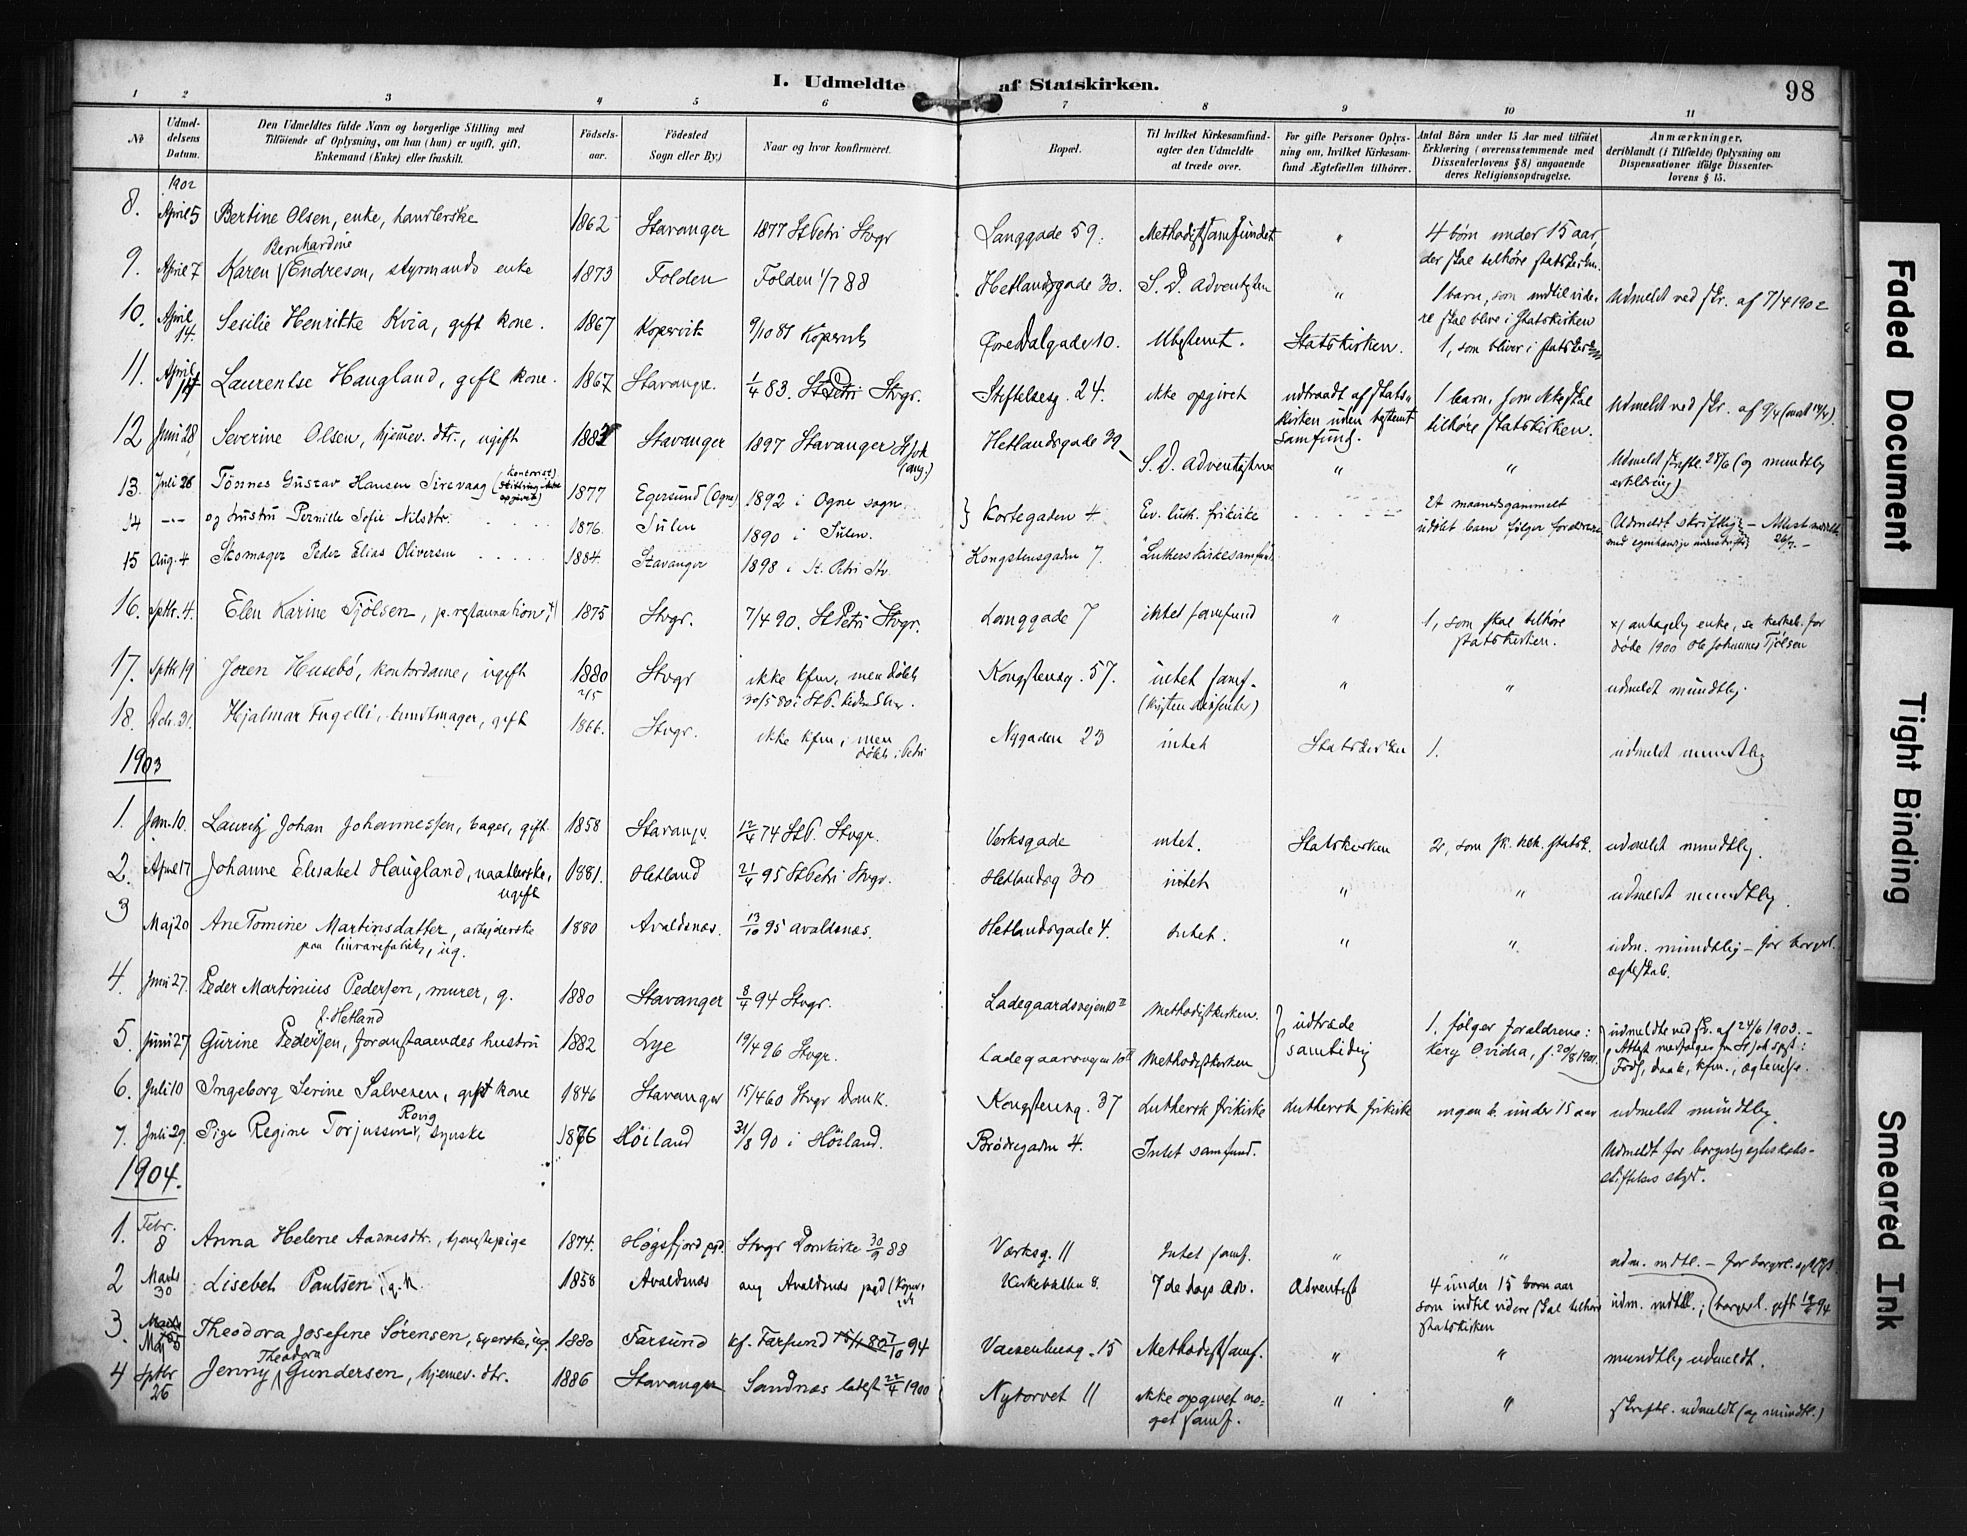 I. Udmeldte af Statskirken.
98
1 2 3 4 5 6 7 8 9 10 11
No
Udmeldelsens Datum.
Den Udmeldtes fulde Navn og borgerlige Stilling med
Tilföiende af Oplysning, om han (hun) er ugift, gift,
Enkemand (Enke) eller fraskilt.
Födselsaar.
Födested
Sogn eller By.)
Naar og hvor konfirmeret.
Bopæl.
Til hvilket Kirkesamfund-
agter den Udmeldte
at træde over.
For gifte Personer Oplys-
ning om, hvilket Kirkesam-
fund Ægtefællen tilhörer.
Antal Börn under 15 Aar med tilföiet
Erklæring (overensstemmende med
Dissenterlovens § 8) angaaende
deres Religionsopdragelse.
Anmærkninger,
deriblandt (i Tilfælde) Oplysning om
Dispensationer ifölge Dissenter-
lovens § 15.
1902
8. April 5 Bertine Olsen, enke, handlerske 1862 Stavanger 1877 St Petri Stvgr Langgade 59. Methodistsamfundet " 4 børn under 15 aar, der skal tilhøre statskirken.
9. April 7 Karen Bernhardine Endresen, styrmands enke 1873 Folden Folden 1/7 88 Hetlandsgade 30. S. D. Adventisten " 1 barn, som indtil vide-
re skal blive i statskirken Udmeldt ved skr. af 7/4 1902
10. April 14. Sesilie Henrikke Kvia, gift kone. 1867 Kopervik 9/10 81 Kopervik Øvre Dalgade 10. Ubestemt. Statskirken. 1, som bliver i statskirken
11. April 14 Laurentse Haugland, gift kone. 1867 Stavanger. 1/4 83. St Petri Stvgr. Stiftelsesg. 24. ikke opgivet udtraadt af stats-
kirken uden bestemt
samfund. 1 barn, som ikke skal
tilhøre statskirken. Udmeldt ved skr. af 9/4
12 Juni 28 Severine Olsen, hjemev. dtr., ugift 1882 Stavanger 1897 Stavanger St Joh (aug.) Hetlandsgade 39 S. D. Adventisterne " " Udmeldt skriftl. 28/6 (og mundtlig
erklæring)
13. Juli 26 Tönnes Gustav Hansen Sirevaag (kontorist) 1877 Egersund (Ogne) 1892 i Ogne sogn } Kortegaden 4. Ev. luth. frikirke Et maanedsgammelt
14 -"- og hustru Pernille Sofie Nilsdtr. 1876. Sulen 1890 i Sulen. udøbt barn følger forældrene Udmeldt skriftlig - Attest meddelt
26/7. -
15 Aug. 4 Skomager Peder Elias Oliversen 1884. Stavanger 1898 i St. Petri Stv. Kongstensgaden 7. "Lutherskirkesamfund
16. Sptbr. 4. Elen Karine Tjölsen, p. restauration, x) 1875 Stvgr. 7/4 90. St Petri Stvgr. Langgade 7 intet samfund " 1, som skal tilhøre
statskirken. x) antagelig enke, se kirkeb. for
døde 1900 Ole Johannes Tjölsen
17. Sptbr 19 Joren Husebö, kontordame, ugift 1880 21/5 Stvgr ikke kfm, men døbt
30/5 80 i St P. Kongstensg. 57. intet samf.
(kristen dissenter) " " udmeldt mundtlig.
18. Dcb. 31. Hjalmar Fugelli, bundtmager, gift 1866. Stvgr. ikke kfm, men
døbt i Petri Nygaden 23 intet Statskirken 1. udmeldt mundtlig
1903
1. Jan. 10. Lauritz Johan Johannessen, bager, gift 1858 Stavanger. 12/4 74 St P. Stvgr. Verksgade intet. Statskirken 2, som sk. tilh. statsk. udmeldt mundtlig.
2. April 17 Johanne Elisabet Haugland, naatlerske,
ugift 1881. Hetland 21/4 95 St Petri Stvgr. Hetlandsg 30 intet " " udmeldt mundtlig.
3 Maj 20 Ane Tomine Martinsdatter, arbejderske
paa linvarefabrik, ug. 1880 Avaldsnæs. 13/10 95 Avaldsnæs. Hetlandsgade 4. Intet. " " udm. mundtlig - for borgerl.
ægteskab.
4. Juni 27. Peder Martinius Pedersen, murer, g. 1880 Stavanger 8/4 94 Stvgr. Ladegaardsvejen 10 II Methodistkirken. } udtræde
samtidig 1. følger forældrene: udmeldte ved skr. af 24/6 1903. -
5. Juni 27 Gurine Pedersen, f. Hetland, foranstaaendes hustru 1882 Lye 19/4 96 Stvgr. Ladegaarsvejen 10 II Methodistkirken f. 20/8 1901. Attest
Føds., daab, kfm., ægtevielse.
6. Juli 10 Ingeborg Serine Salvesen, gift kone 1846 Stavanger 15/4 60 Stvgr Domk. Kongstensg. 37 Luthersk frikirke Luthersk frikirke ingen b. under 15 aar udmeldt mundtlig
7. Juli 29. Pige Regine Torjussen Rovig, syerske 1876 Höiland 31/8 90 i Höiland. Brödregaden 4. Intet samfund. Udmeldt for borgerlig egteskabs-
stiftelses skyld.
1904.
1. Febr. 8 Anna Helene Aadnesdtr., tjenestepige 1874. Høgsfjord pgd. Stvgr Domkirke 30/9 88 Værksg. 11 Intet samf. " " udm. mdtl. - for borgerl. egtesk.
2 Marts 30 Lisebet Paulsen, g. k. 1858 Avaldsnæs ang Avaldsnæs pgd (Koper-
vik Kirkebakken 8. 7de dags Adv. Adventist 4 under 15 aar
som indtil videre skal tilhøre
statskirken udm. mdtl.; (borgerl. gift 94
3. Maj 5 Theodora Josefine Sörensen, syerske, ug. 1880 Farsund kf. Farsund 7/10 94 Vaisenhusg. 15 Methodistsamf. " " mundtlig udmeldt.
4 Sptbr 26 Jenny Theodora Gundersen, hjemev. dtr. 1886 Stavanger Sandnæs 22/4 1900 Nytorvet 11 ikke opgivet no-
get samf. " " skriftl. udmeldt (og mundtl.)
Faded Document
Tight Binding
Smeared Ink